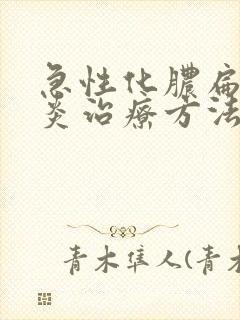 急性化膿扁
炎治療方法
青木隼人(青木